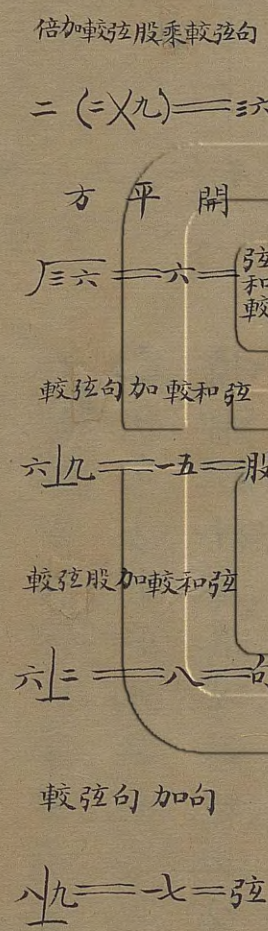 倍加較弦股乘較弦句
二(二)(九)＝三六
方平開
√三六＝六＝弦和較
較弦句加較和弦
六⊥九＝一五＝股
較弦股加較和弦
六⊥二＝八＝句
較弦句加句
八⊥九＝一七＝弦